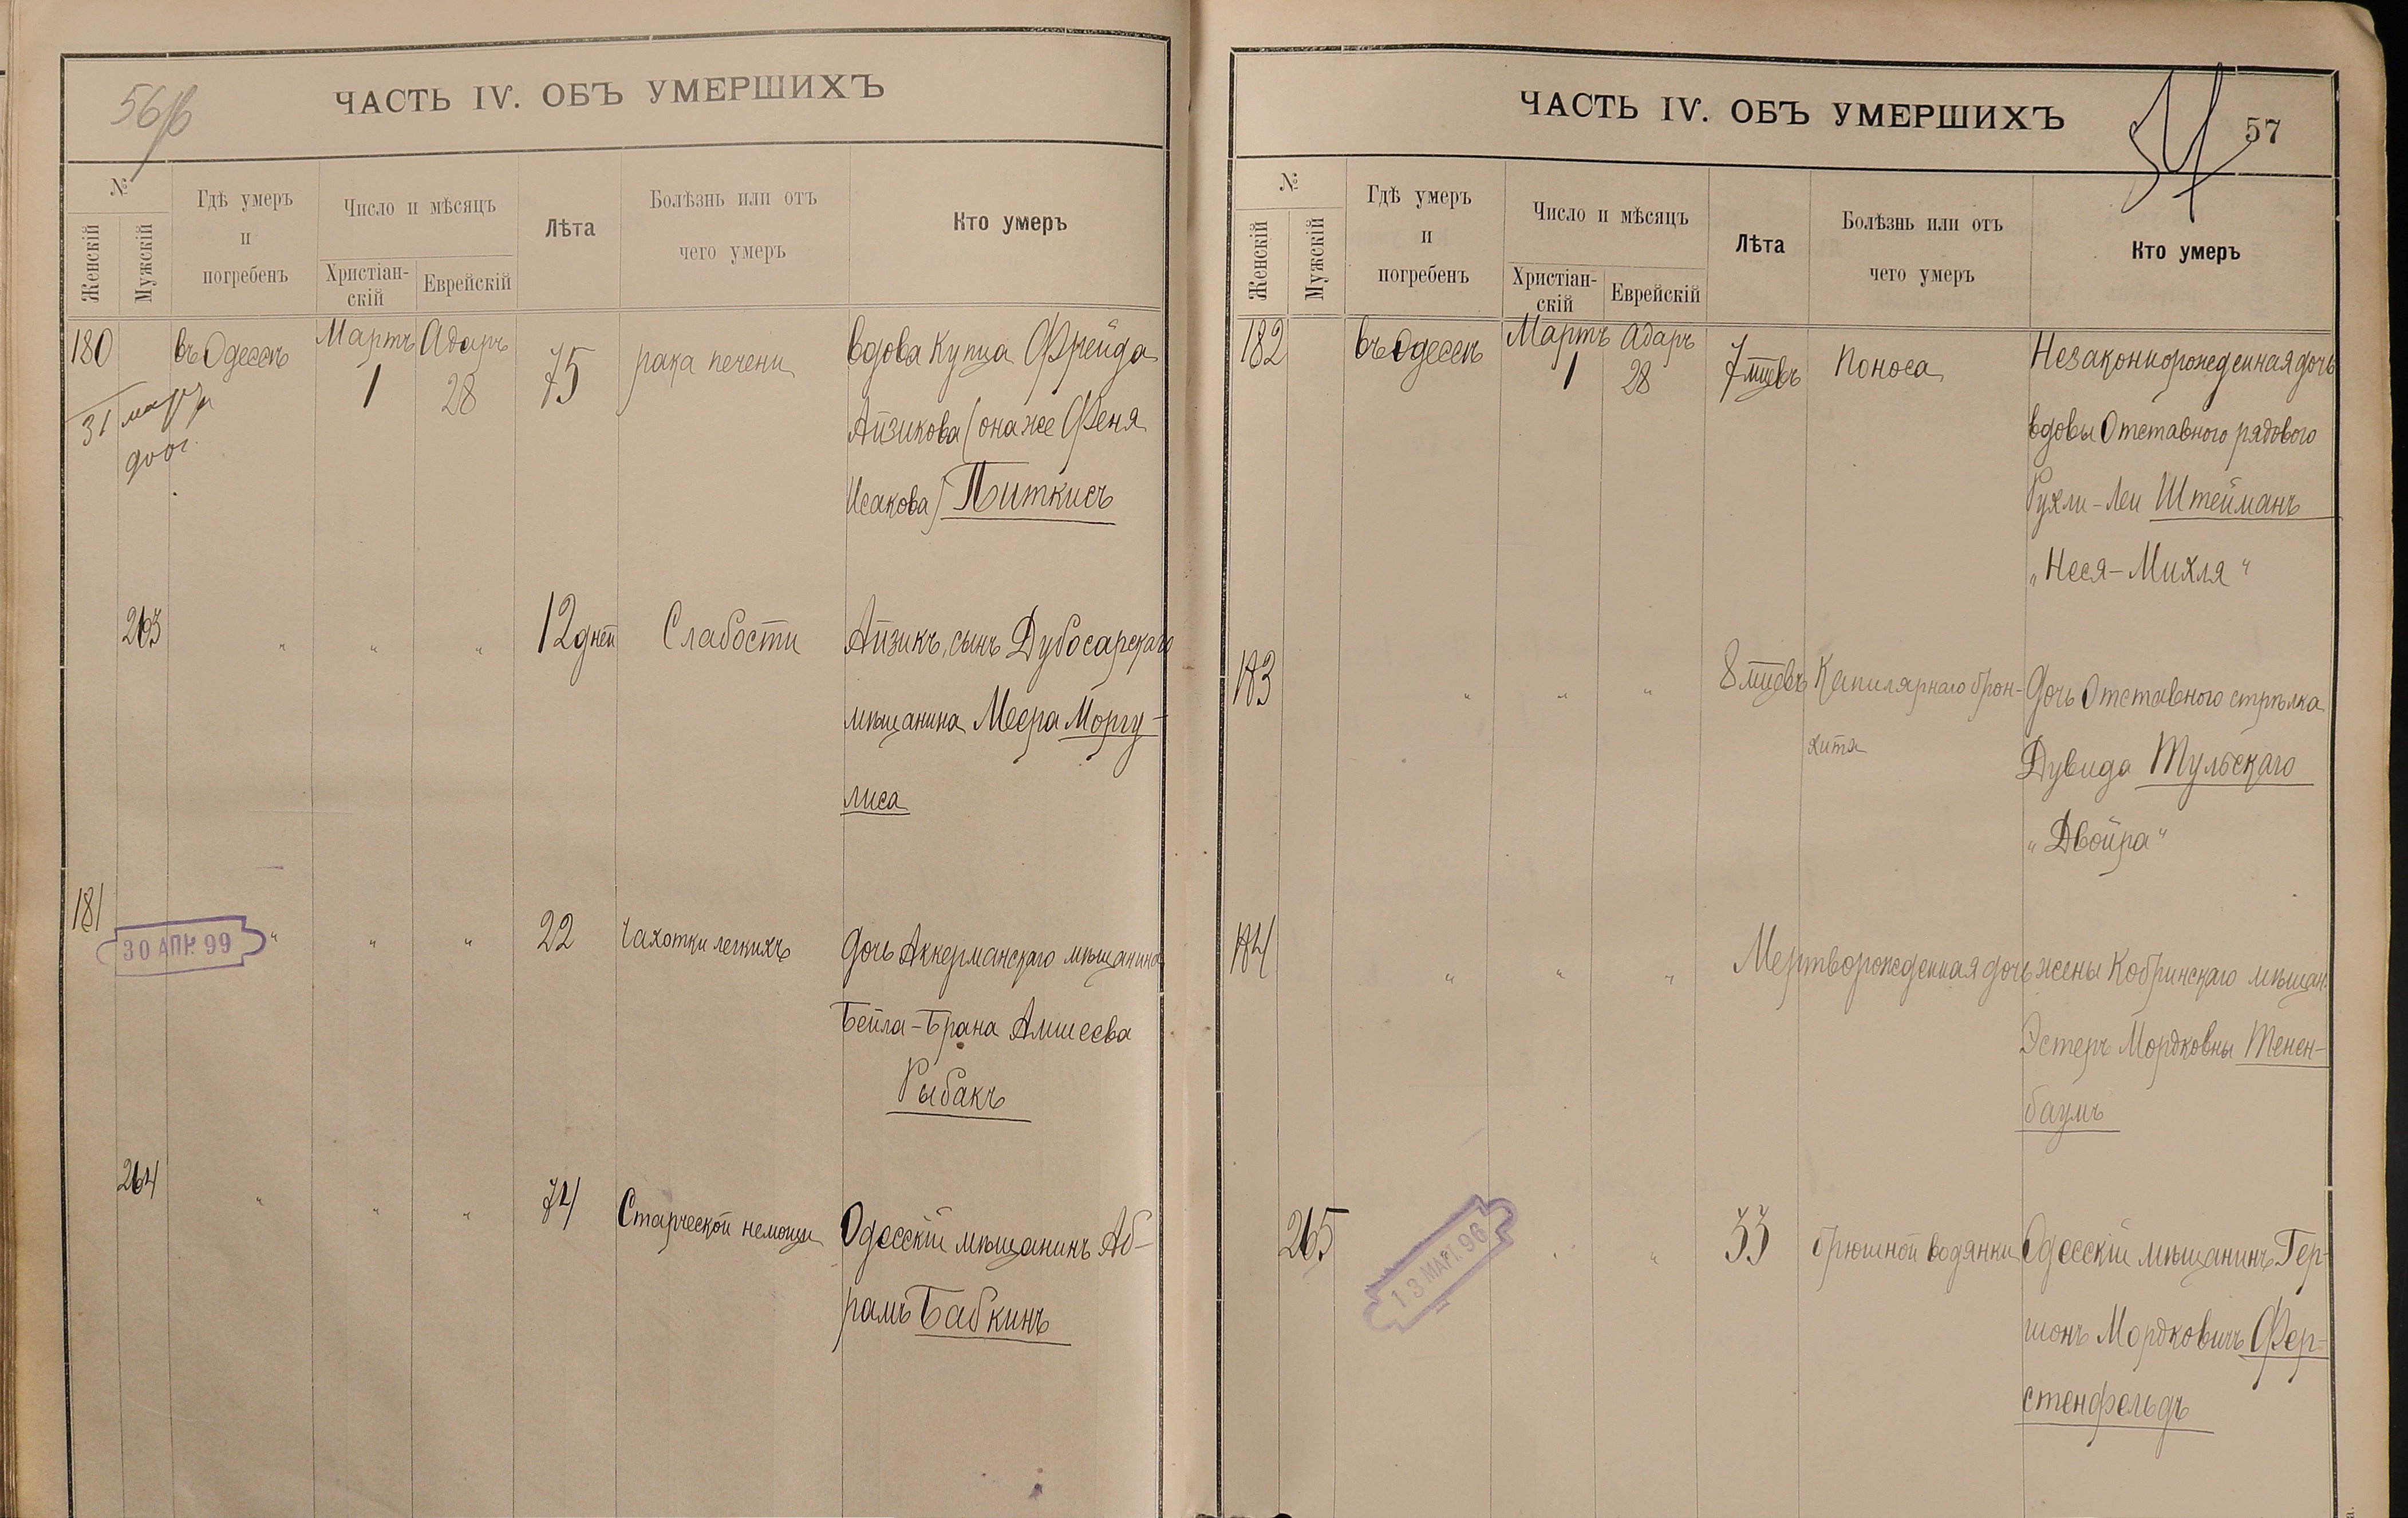 56/б
ЧАСТЬ IV. ОБЪ УМЕРШИХЪ
№
Женскій
Мужскій
Гдѣ умеръ
и
погребенъ
Число и мѣсяцъ
Христіан-
скій
Еврейскій
Лѣта
Болѣзнь или отъ
чего умеръ
Кто умеръ
180 въ Одессѣ Мартъ 1 Адаръ 28 75 рака печени вдова купца Фрейда
Айзикова (она же Феня
Исакова) Питкисъ
31 мар
263 " " " 12 дней Слабости Айзикъ, сынъ Дубосарскаго
мѣщанина Меера Моргу-
лиса
181 " " " 22 Чахотки легкихъ дочь Аккерманскаго мѣщанина
Бейла-Брана Амшеева
Рыбакъ
30 АПР. 99
264 " " " 74 Старческой немощи Одесскій мѣщанинъ Аб-
рамъ Бабкинъ
ЧАСТЬ IV. ОБЪ УМЕРШИХЪ
57
57
№
Женскій
Мужскій
Гдѣ умеръ
и
погребенъ
Число и мѣсяцъ
Христіан-
скій
Еврейскій
Лѣта
Болѣзнь или отъ
чего умеръ
Кто умеръ
182 въ Одессѣ Мартъ 1 Адаръ 28 7 мцевъ Поноса Незаконнорожденная дочь
вдовы Отставного рядового
Рухли-Леи Штейманъ
"Неся-Михля"
183 " " " 8 мцевъ Капилярнаго брон- Дочь Отставного стрѣлка
хита Дувида Тульскаго
"Двойра"
184 " " " Мертворожденная дочь жены Кобринскаго мѣщан.
Эстеръ Мордковны Тенен-
баумъ
265 " " 55 брюшной водянки Одесскій мѣщанинъ Гер-
шонъ Мордковичъ Фер-
стенфельдъ
13 МАР. 96